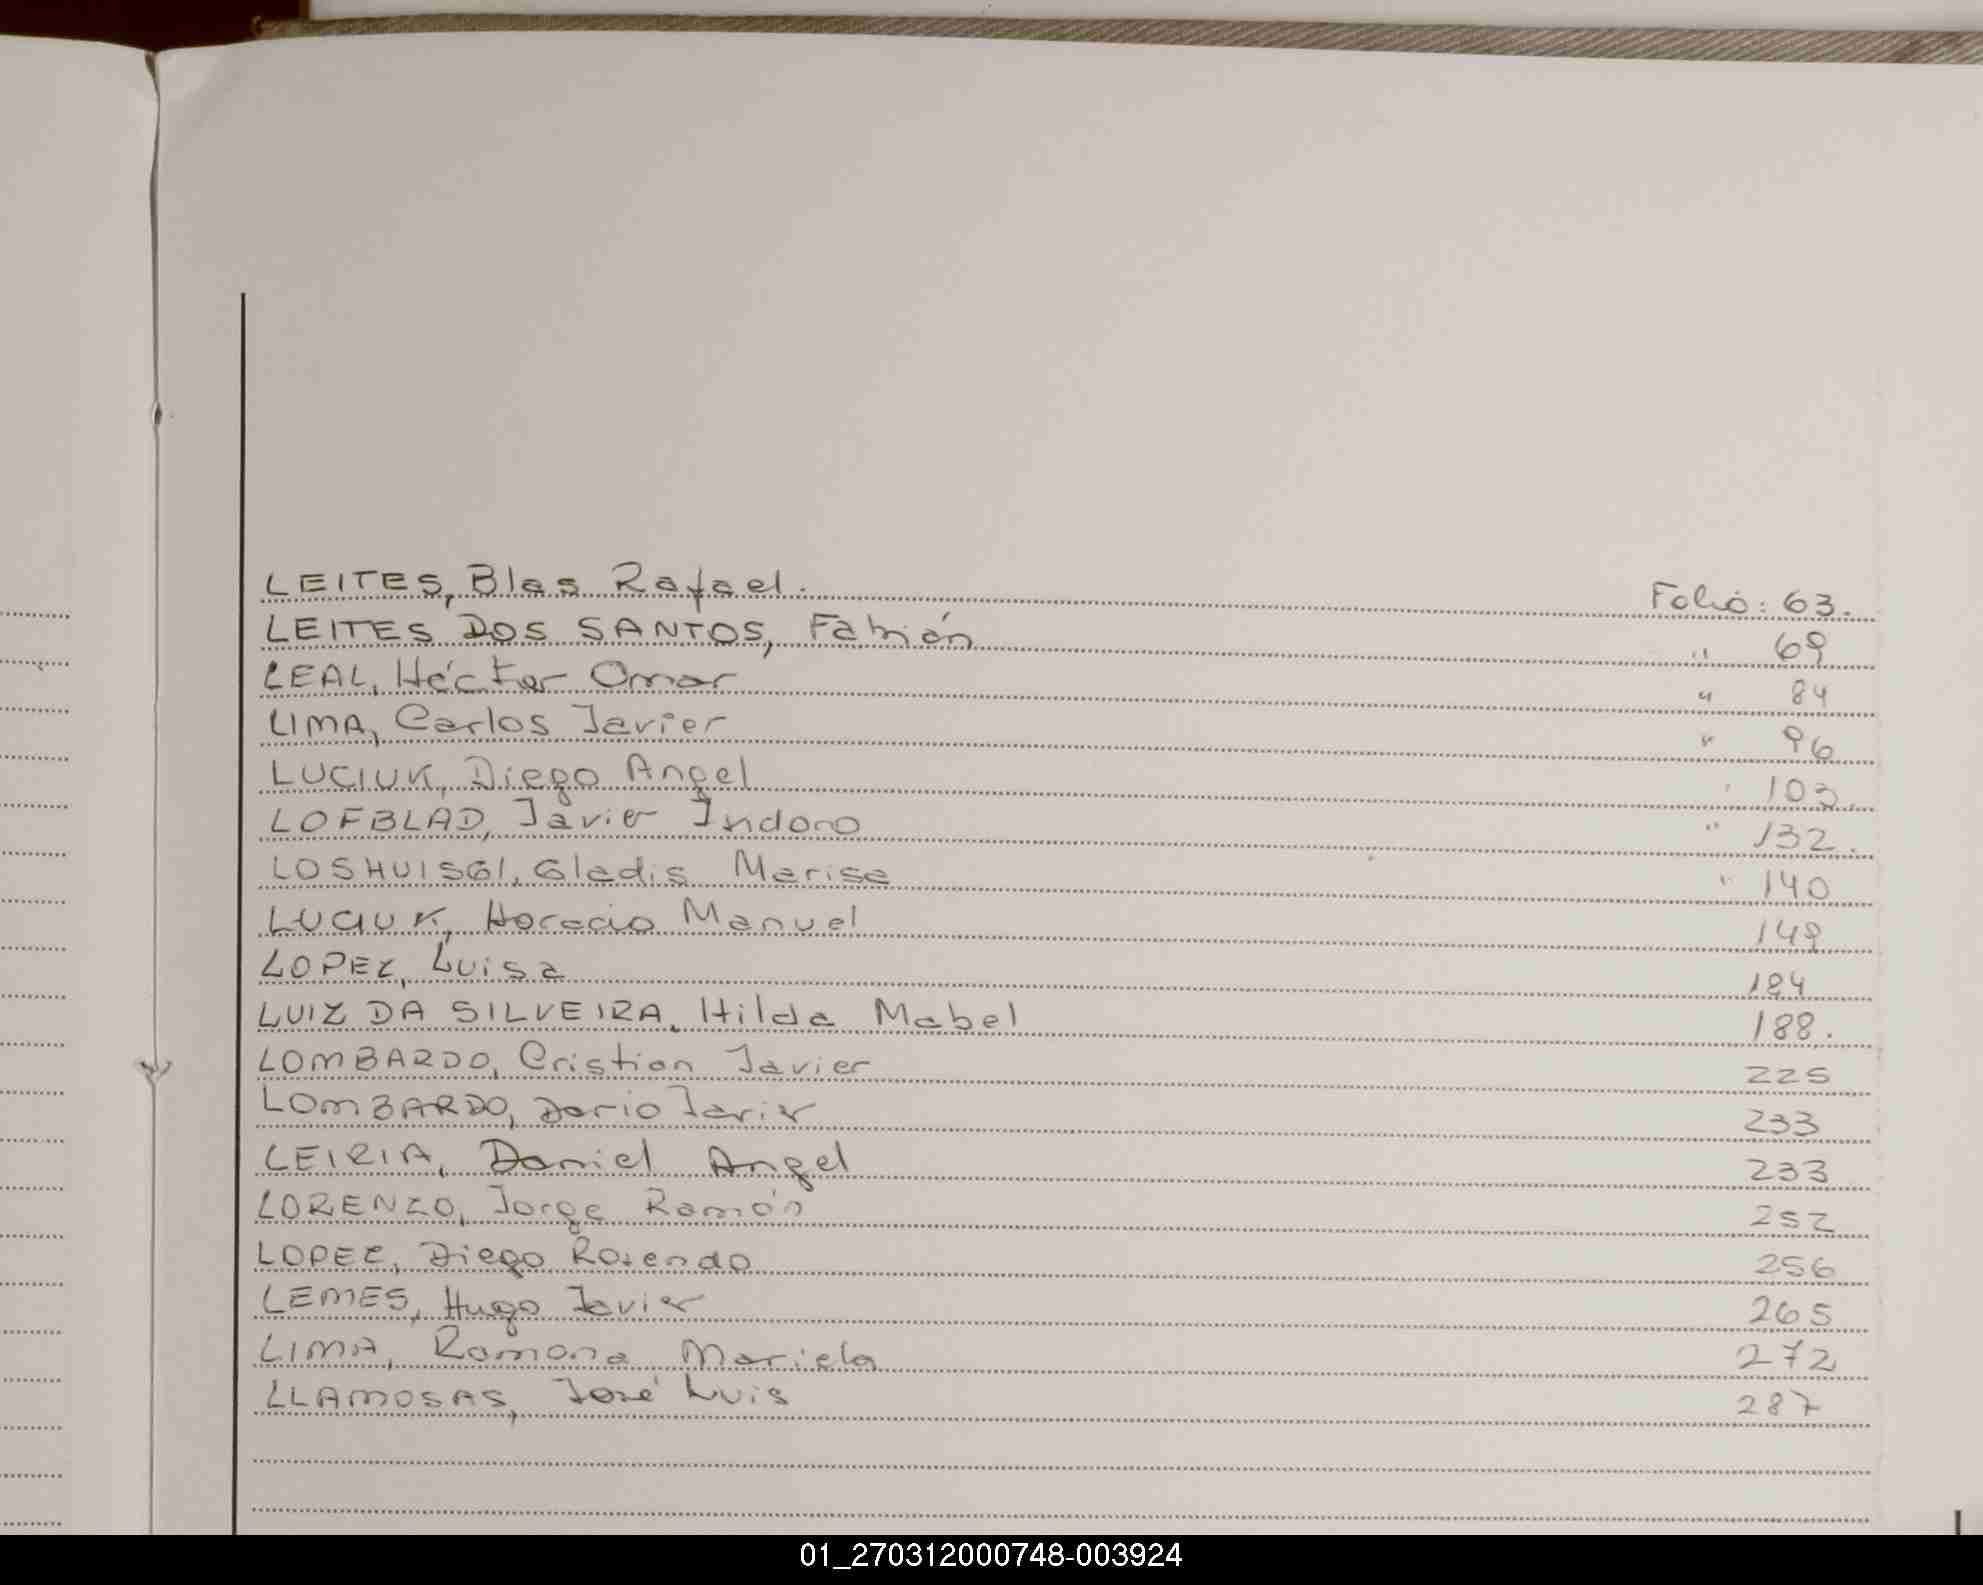 LEITES, Blas Rafael. Folio: 63.
LEITES DOS SANTOS, Fabián " 69
LEAL, Héctor Omar " 84
LIMA, Carlos Javier " 96
LUCIUK, Diego Angel " 103.
LOFBLAD, Javier Indoro " 132.
LOSHUISGI, Gladis Marisa " 140
LUCIUK, Horacio Manuel 149
LOPEZ, Luisa 184
LUIZ DA SILVEIRA, Hilda Mabel 188.
LOMBARDO, Cristian Javier 225
LOMBARDO, Dario Javier 233
LEIRIA, Daniel Angel 233
LORENZO, Jorge Ramón 252
LOPEZ, Diego Rosendo 256
LEMES, Hugo Javier 265
LIMA, Ramona Mariela 272
LLAMOSAS, José Luis 287
01_270312000748-003924